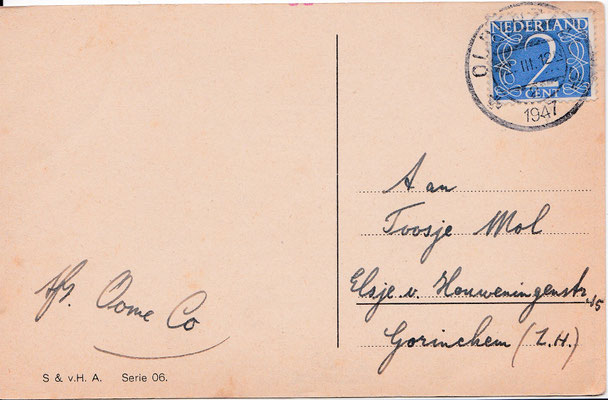 NEDERLAND
2
CENT
III. 12
1947
Aan
Toosje Mol
Elsje v. Houweningenstr 45
Gorinchem (Z.H.)
Afz. Oome Co
S & v.H. A. Serie 06.